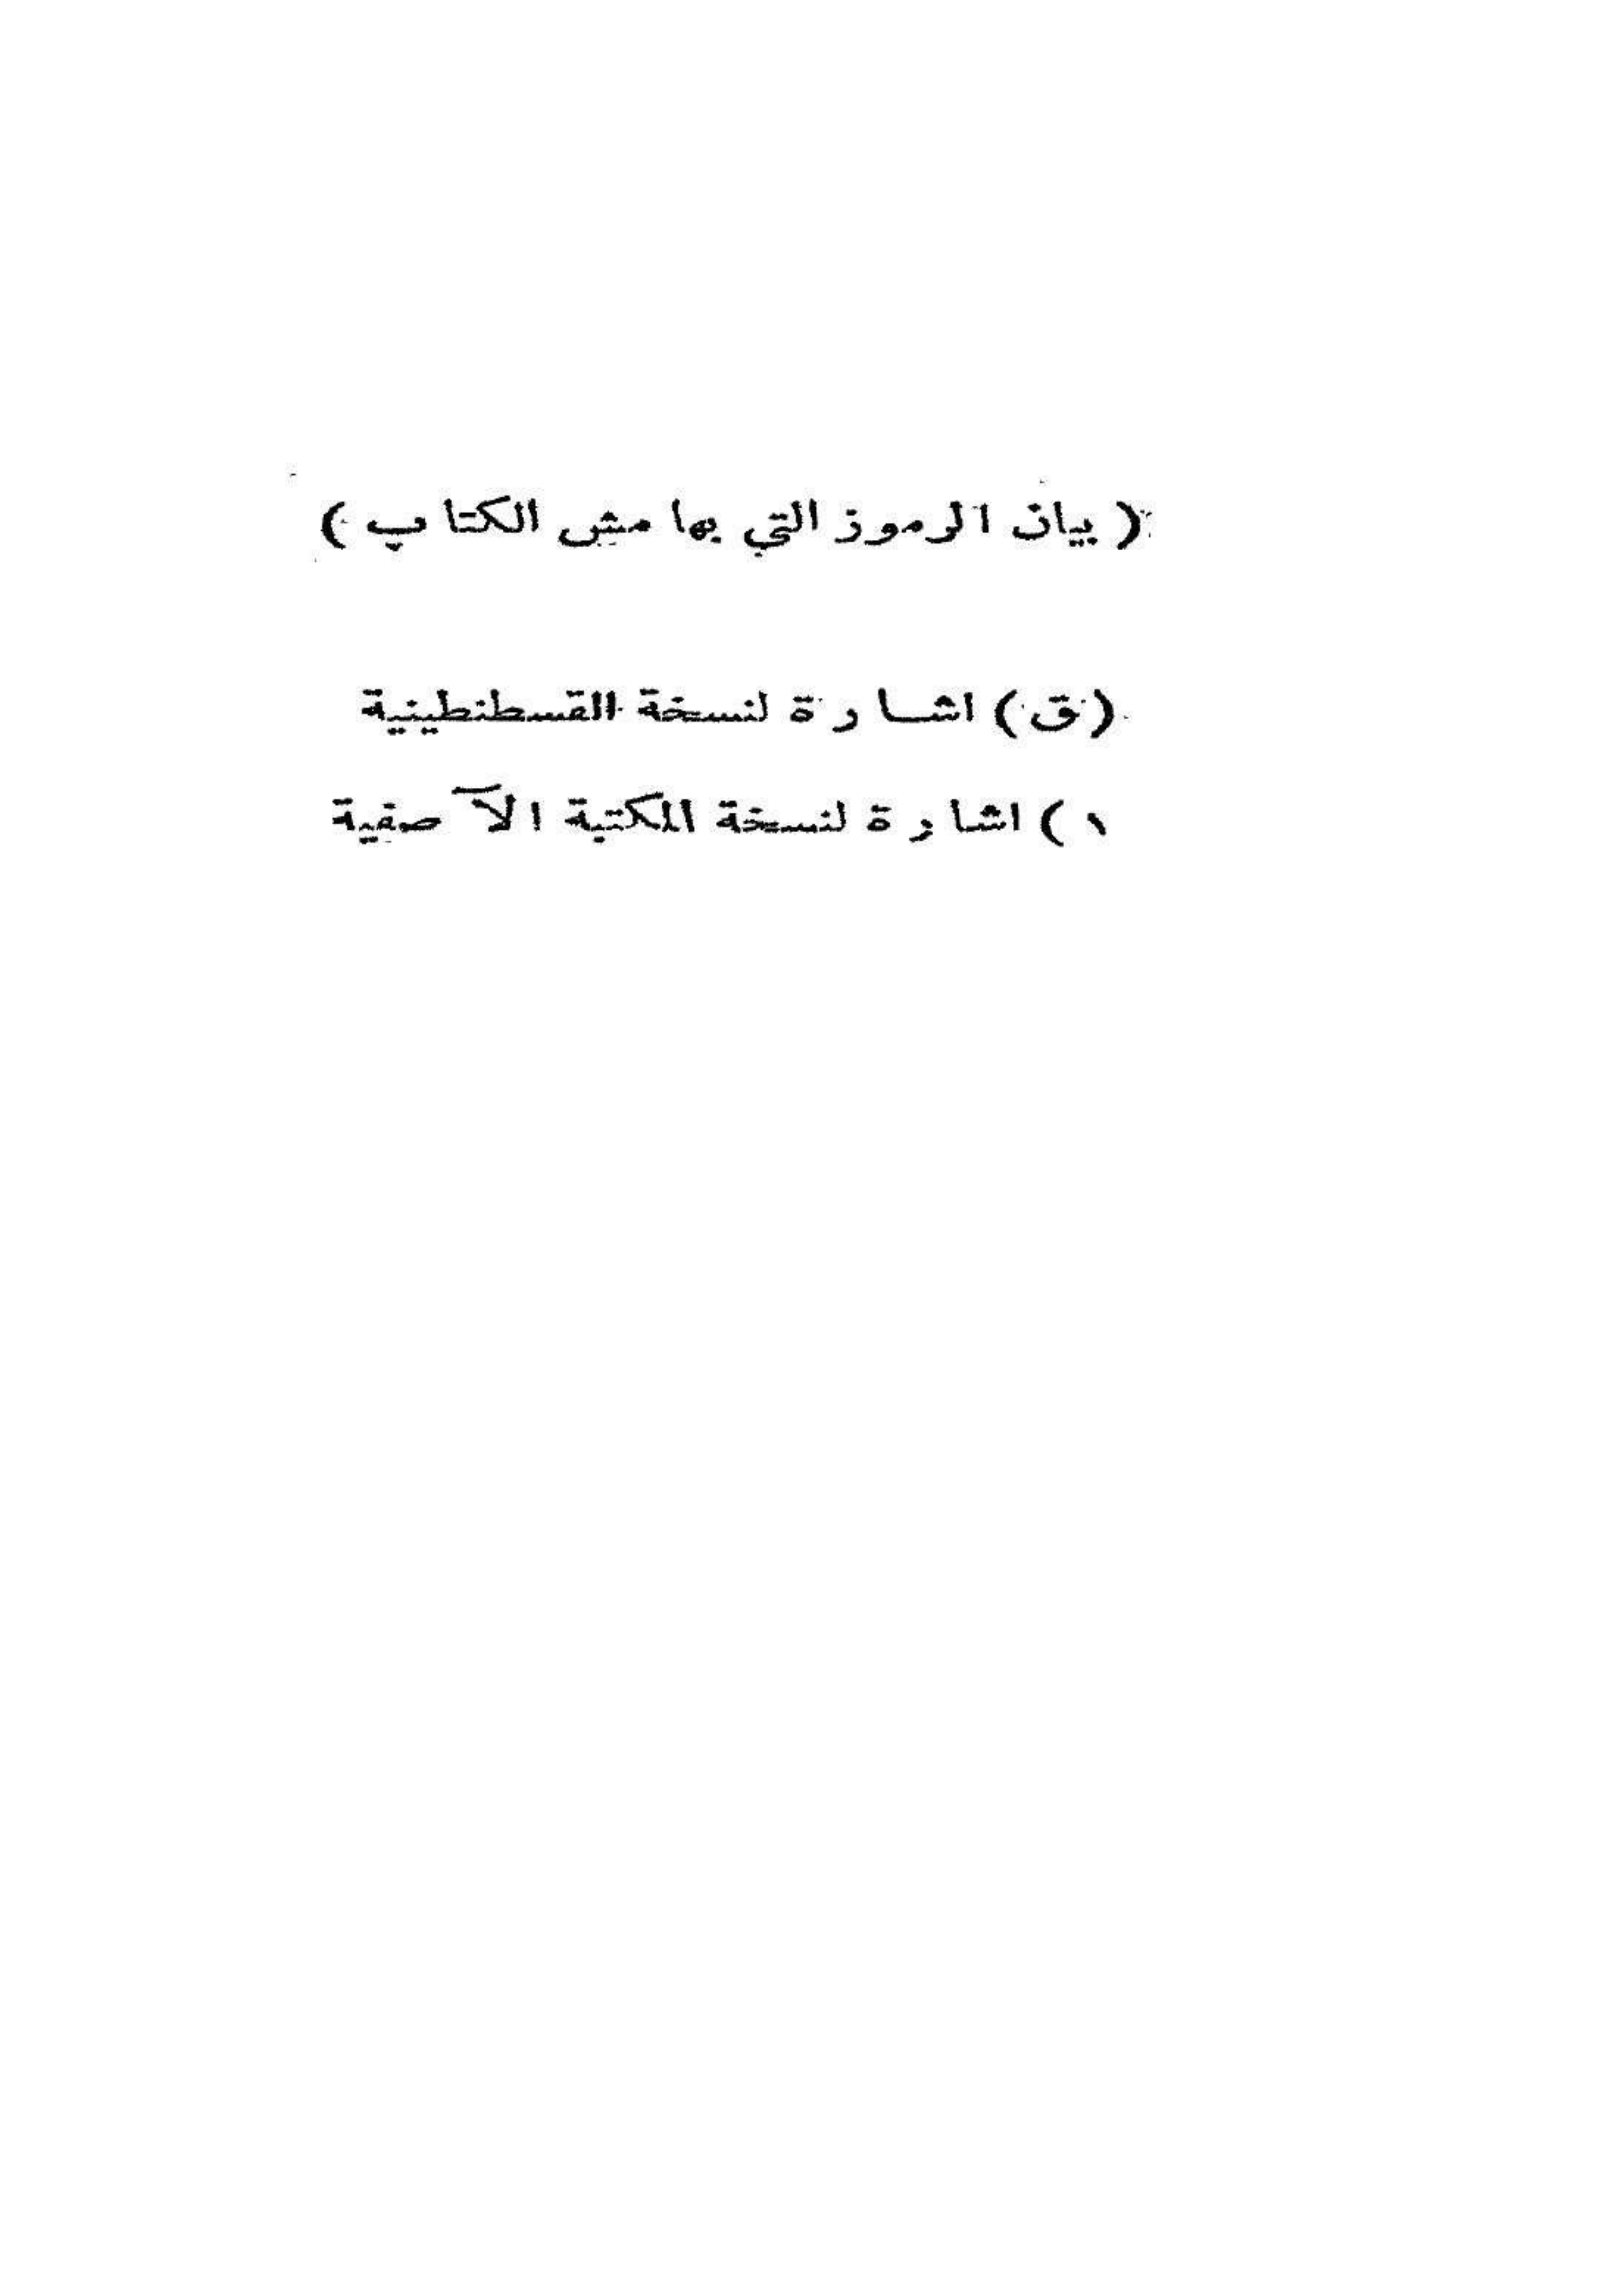 ( بيان الرموز التي بهامش الكتاب )
(ق) اشارة لنسخة القسطنطينية
١ ) اشارة لنسخة المكتبة الآصفية